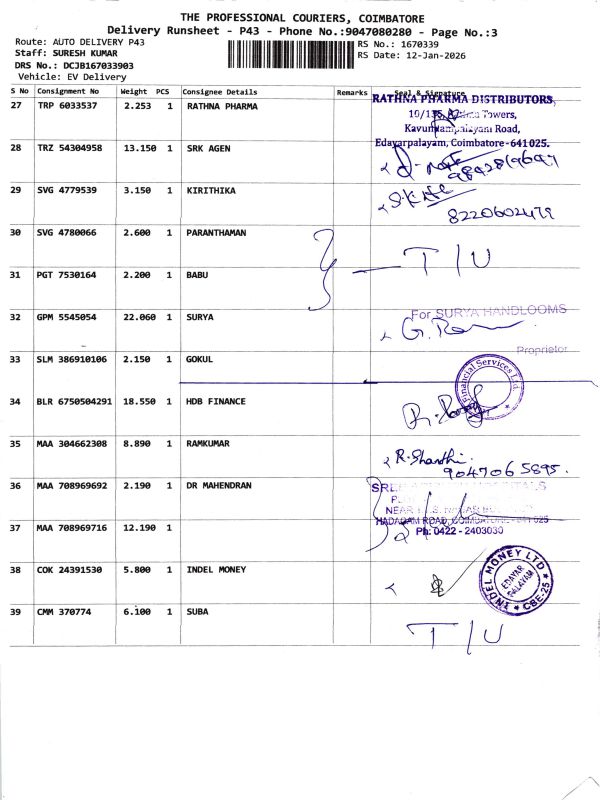 THE PROFESSIONAL COURIERS, COIMBATORE
Delivery Runsheet - P43 - Phone No.:9047080280 - Page No.:3
Route: AUTO DELIVERY P43
Staff: SURESH KUMAR
DRS No.: DCJB167033903
Vehicle: EV Delivery
RS No.: 1670339
RS Date: 12-Jan-2026
S No Consignment No Weight PCS Consignee Details Remarks Seal & Signature
27 TRP 6033537 2.253 1 RATHNA PHARMA
RATHNA PHARMA DISTRIBUTORS,
Towers,
Road,
Edayarpalayam, Coimbatore - 641 025.
28 TRZ 54304958 13.150 1 SRK AGEN
29 SVG 4779539 3.150 1 KIRITHIKA
8220602479
30 SVG 4780066 2.600 1 PARANTHAMAN
T/U
31 PGT 7530164 2.200 1 BABU
32 GPM 5545054 22.060 1 SURYA
For SURYA HANDLOOMS
Proprietor
33 SLM 386910106 2.150 1 GOKUL
34 BLR 6750504291 18.550 1 HDB FINANCE
Financial Services Ltd
35 MAA 304662308 8.890 1 RAMKUMAR
R. Shanthi.
9047065895.
36 MAA 708969692 2.190 1 DR MAHENDRAN
37 MAA 708969716 12.190 1
Ph: 0422 - 2403030
38 COK 24391530 5.800 1 INDEL MONEY
INDEL MONEY LTD
EDAYAR
PALAYAM
CBE-25
39 CMM 370774 6.100 1 SUBA
T/U